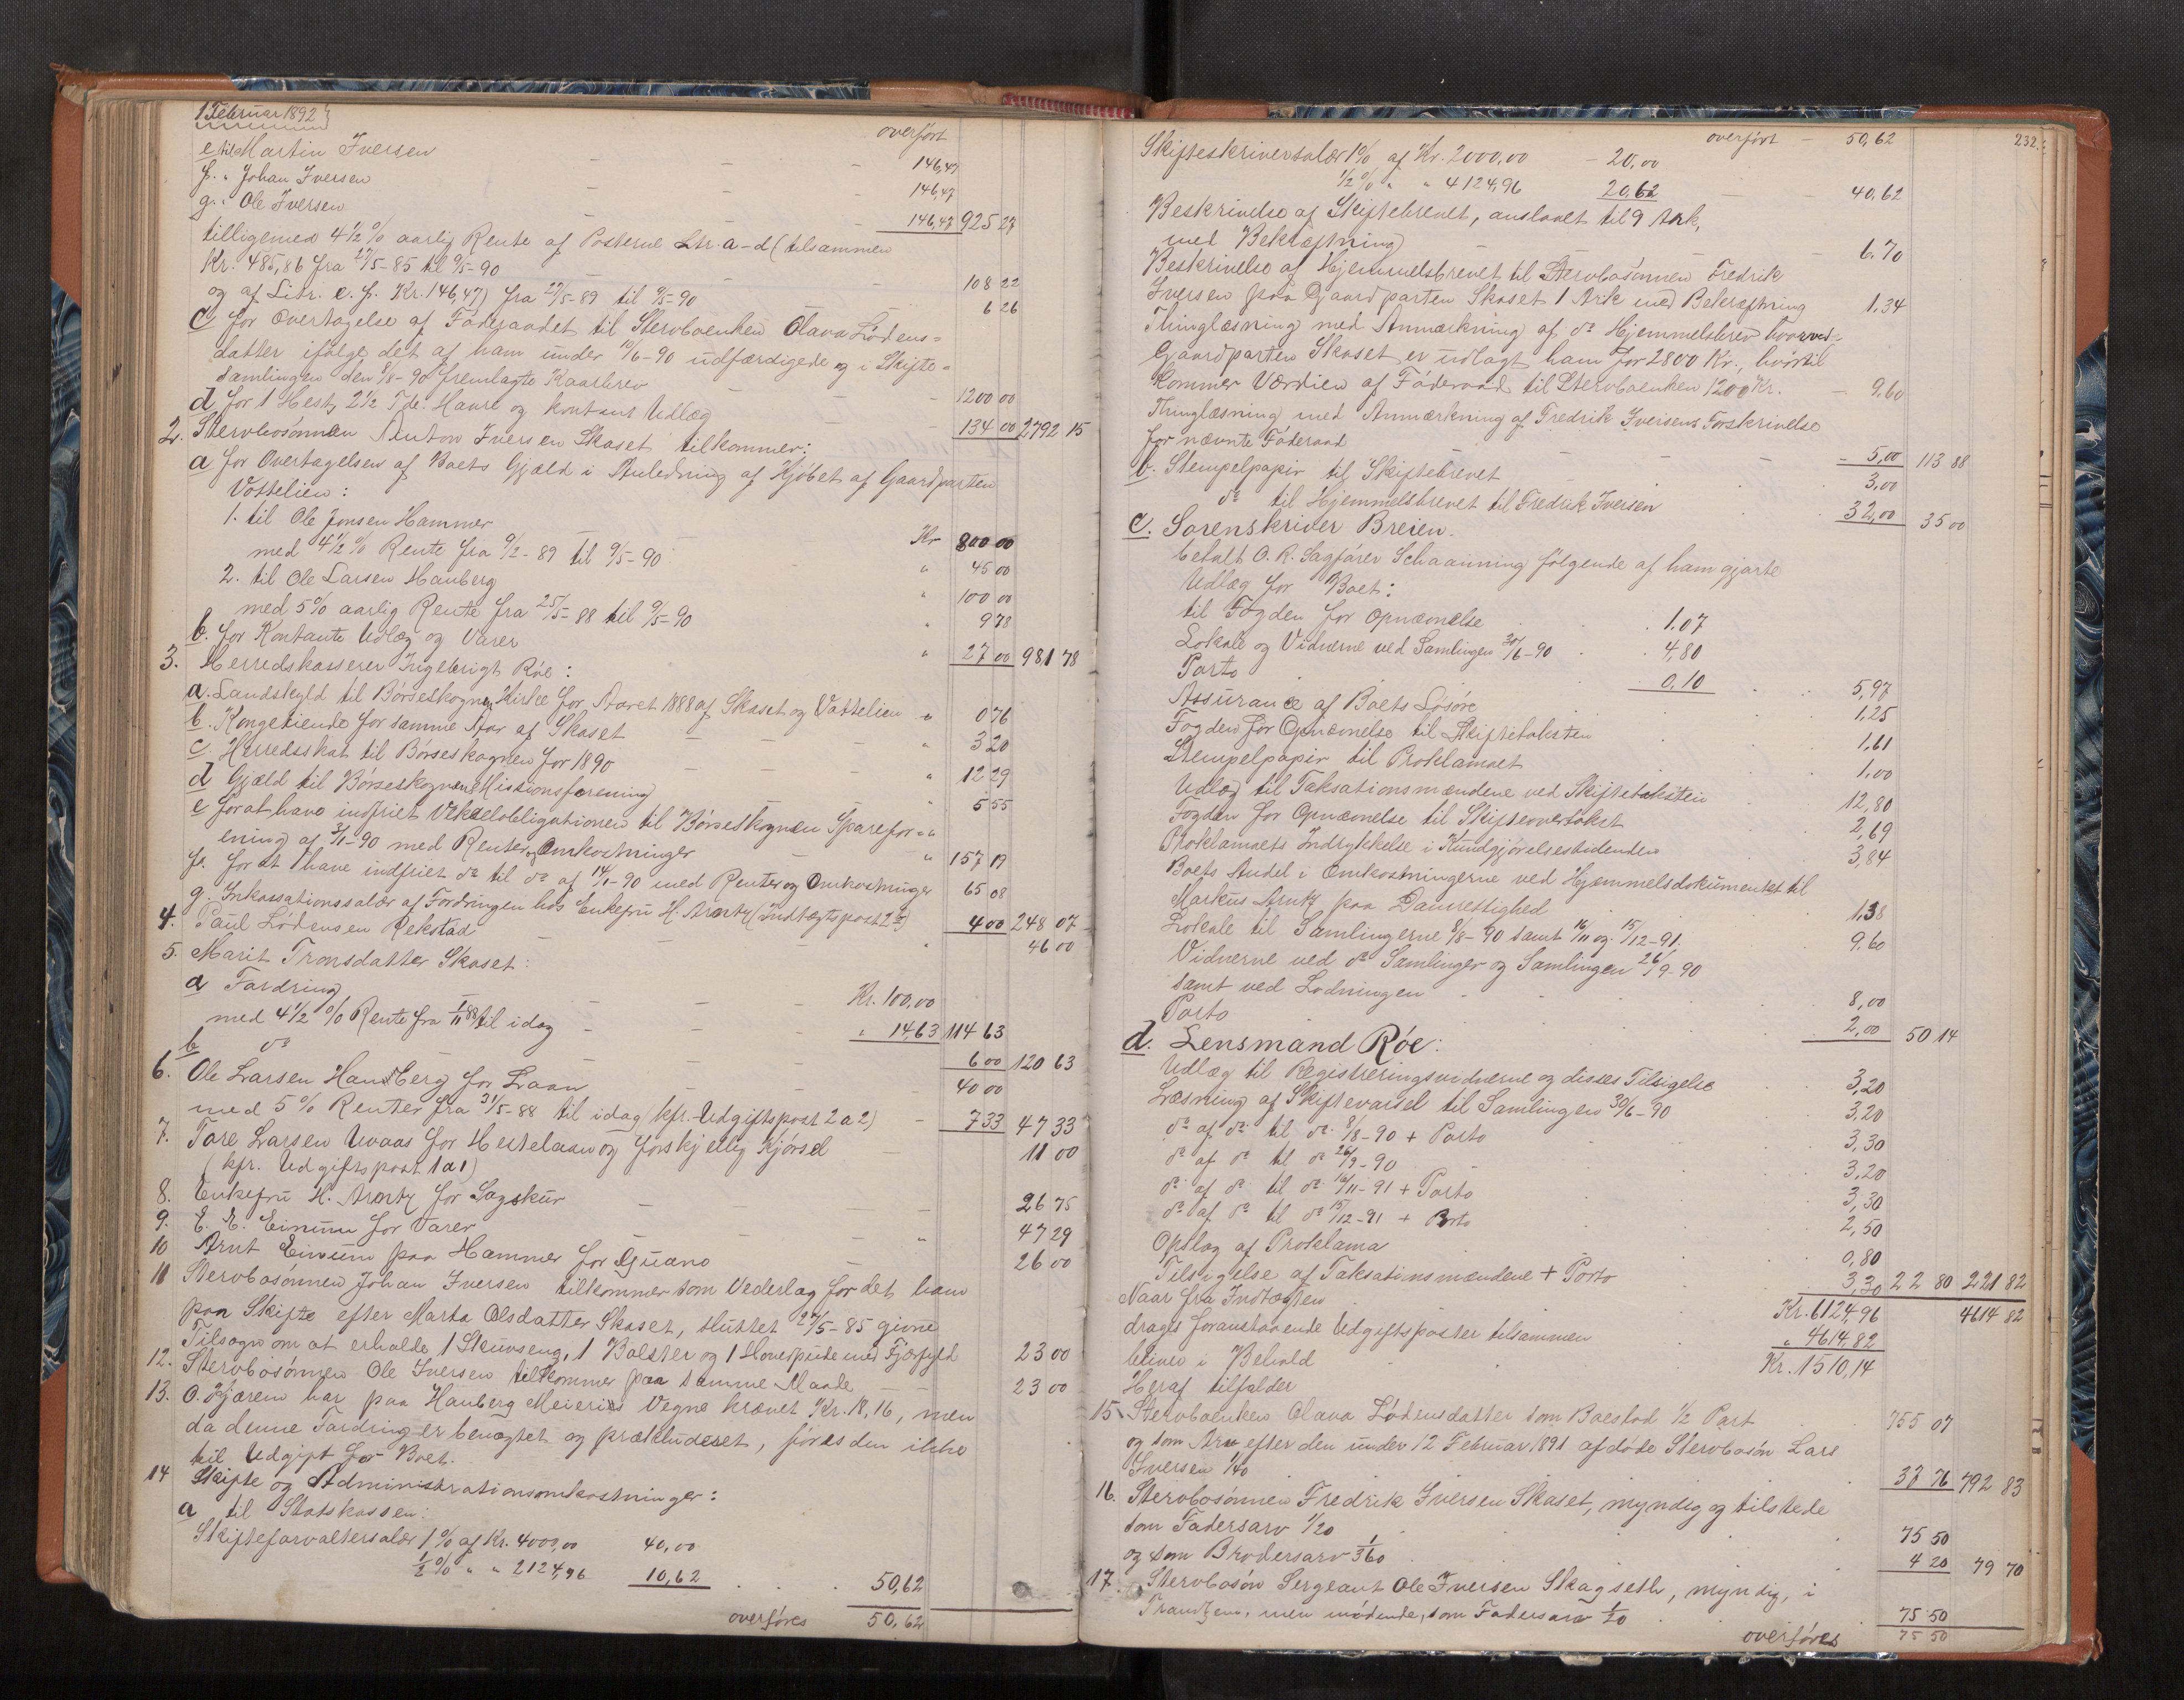 1 Februar 1892
overført
e til Martin Iversen – – – 146,47
f. " Johan Iversen – – – 146,47
g. " Ole Iversen – – – 146,47 925 27
tilligemed 4½ % aarlig Rente af Posterne Ltr. a-d (tilsammen
Kr. 485,86 fra 27/5-85 til 9/5-90 – – 108 22
og af Litr. e. f. Kr. 146,47) fra 27/5-89 til 9/5-90 6 26
c for Overtagelse af Føderaadet til Stervboenken Olava Lødens=
datter ifølge det af ham under 10/6-90 udfærdigede og i Skifte=
samlingen den 8/8-90 fremlagte Kaarbrev – 1200 00
d for 1 Hest, 2½ Tde. Havre og kontant Udlæg – 134 00 2792 15
2. Stervbosønnen Anton Iversen Skaset tilkommer:
a for Overtagelsen af Boets Gjæld i Anledning af Kjøbet af Gaardparten
Vottelien:
1. til Ole Jonsen Hammer Kr 800 00
med 4½ % Rente fra 9/2-89 til 9/5-90 " 45 00
2. til Ole Larsen Hanberg " 100 00
med 5% aarlig Rente fra 25/5-88 til 9/5-90 " 9 78
b. for Kontante Udlæg og Varer " 27 00 981 78
3. Herredskasserer Ingebrigt Røe:
a. Landskyld til Børseskognens Kirke for Aaret 1888 af Skaset og Vattelien " 0 76
b. Kongetiende for samme Aar af Skaset " 3 20
c. Herredsskat til Børseskognen for 1890 – – – " 12 29
d Gjæld til Børseskognens Missionsforening " 5 55
e for at have indfriet Vekselobligationen til Børseskognen Sparefor-
ening af 3/1-90 med Renter og Omkostninger – " 157 19
f. for at have indfriet do til do af 14/1-90 med Renter og Omkostninger 65 08
g. Inkassationssalær af Fordringen hos Enkefru H. Arntz (Indtægtspost 2) 4 00 248 07
4. Paul Lødensen Rekstad – – – " 46 00
5. Marit Tronsdatter Skaset:
a Fordring – – – Kr. 100,00
med 4½ % Rente fra 1/11 88 til idag – – – " 14,63 114 63
b do – – 6 00 120 63
6. Ole Larsen Hanberg for Laan – – 40 00
med 5 % Renter fra 31/5-88 til idag (kfr. Udgiftspost 2 a 2) – 7 33 47 33
7. Tore Larsen Uvaas for Hestelaan og forskjellig Kjørsel – 11 00
(kfr. Udgiftspost 1 a 1)
8. Enkefru H. Arntz for Sagskur – – – – 26 75
9. E. E. Einum for Varer – – – " 47 29
10 Arnt Einum paa Hammer for Guano – 26 00
11 Stervbosønnen Johan Iversen tilkommer som Vederlag for det ham
paa Skifte efter Marta Olsdatter Skaset, sluttet 27/5-85 givne
Tilsagn om at erholde 1 Skuvseng, 1 Bolster og 1 Hovedpude med Fjærfyld 23 00
12. Stervbosønnen Ole Iversen tilkommer paa samme Maade – – 23 00
13. O. Gjærem har paa Hanberg Meieries Vegne krævet Kr. 18,16, men
da denne Fordring er benægtet og prækluderet, føres den ikke
til Udgift for Boet.
14 Skifte og Administrationsomkostninger:
a til Statskassen:
Skifteforvaltersalær 1 % af Kr. 4000,00 40,00
½ % " " 2124,96 10,62 . . . 50,62
overføres 50,62
232.
overført – 50,62
Skifteskriversalær 1% af Kr. 2000,00 – 20,00
½ % " " 4124,96 20,62 – 40,62
Beskrivelse af Skiftebrevet, anslaaet til 9 Ark,
med Bekræftning – 6.70
Beskrivelse af Hjemmelsbrevet til Stervbosønnen Fredrik
Iversen paa Gaardparten Skaset 1 Ark med Bekræftning 1,34
Thinglæsning med Anmærkning af do Hjemmelsbrev hvorved
Gaardparten Skaset er udlagt ham for 2800 Kr., hvortil
kommer Værdien af Føderaad til Stervboenken 1200 Kr. – 9,60
Thinglæsning med Anmærkning af Fredrik Iversens Forskrivelse
for nævnte Føderaad – – – – 5,00 113 88
b. Stempelpapir til Skiftebrevet 3,00
do til Hjemmelsbrevet til Fredrik Iversen 32,00 35 00
c. Sorenskriver Breien.
betalt O. R. Sagfører Schaanning følgende af ham gjorte
Udlæg for Boet:
til Fogden for Opnævnelse 1.07
Lokale og Vidnerne ved Samlingen 30/6-90 4,80
Porto 0,10 5,97
Assurance af Boets Løsøre 1,25
Fogden for Opnævnelse til Skiftetaksten 1,61
Stempelpapir til Proklamaet 1,00
Udlæg til Taksationsmændene ved Skiftetaksten 12,80
Fogden for Opnævnelse til Skifteovertakst 2,69
Proklamaets Indrykkelse i Kundgjørelsestidenden 3,84
Boets Andel i Omkostningerne ved Hjemmelsdokumentet til
Markus Arntz paa Damrettighed 1,38
Lokale til Samlingerne 8/8-90 samt 16/11 og 15/12-91. 9.60
Vidnerne ved do Samlinger og Samlingen 26/9-90
samt ved Lodningen 8,00
Porto 2,00 50 14
d. Lensmand Røe:
Udlæg til Registreringsvidnerne og disses Tilsigelse 3,20
Læsning af Skiftevarsel til Samlingen 30/6-90 3,20
do af do til do 8/8-90 + Porto 3,30
do af do til do 26/9-90 3,20
do af do til do 16/11-91 + Porto 3,30
do af do til do 15/12-91 + Porto 2,50
Opslag af Proklama 0,80
Tilsigelse af Taksationsmændene + Porto 3,30 22 80 221 82
Naar fra Indtægten Kr. 6124,96 4614 82
drages foranstaaende Udgiftsposter tilsammen " 4614,82
bliver i Behold – Kr. 1510,14
Heraf tilfalder
15. Stervboenken Olava Lødensdatter som Boeslod ½ Part 755 07
og som Arv efter den under 12 Februar 1891 afdøde Stervbosøn Lars
Iversen 1/40 37 76 792 83
16. Stervbosønnen Fredrik Iversen Skaset, myndig og tilstede
som Fadersarv 1/20 75 50
og som Brodersarv 1/360 4 20 79 70
17. Stervbosøn Sergeant Ole Iversen Skagseth, myndig, i
Trondhjem, men mødende, som Fadersarv 1/20 75 50
overføres 75 50